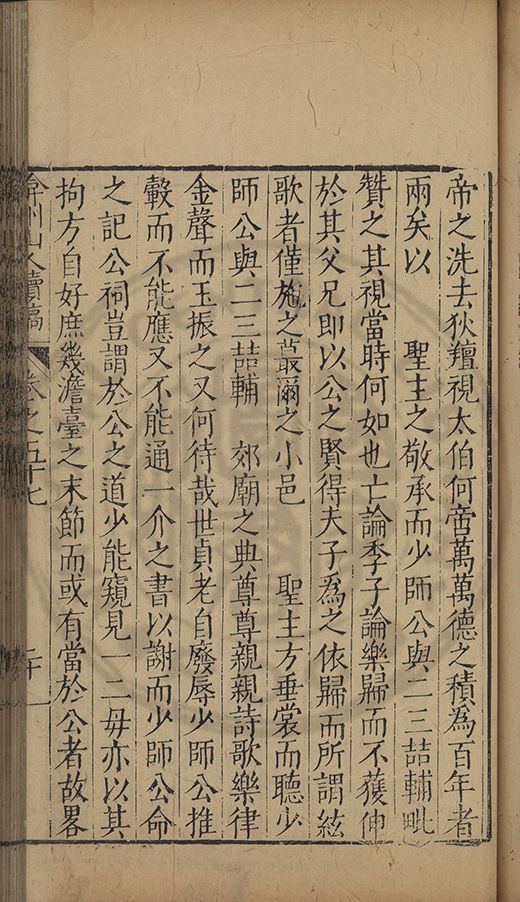 帝之洗去狄羶視太伯何啻萬萬德之積為百年者
兩矣以　　聖主之敬承而少師公與二三喆輔毗
贊之其視當時何如也亡論季子論樂歸而不獲伸
於其父兄即以公之賢得夫子為之依歸而所謂絃
歌者僅施之蕞爾之小邑　　聖主方垂裳而聽少
師公與二三喆輔　郊廟之典尊尊親親詩歌樂律
金聲而玉振之又何待哉世貞老自廢辱少師公推
轂而不能應又不能通一介之書以謝而少師公命
之記公祠豈謂於公之道少能窺見一二毋亦以其
拘方自好庶幾澹臺之末節而或有當於公者故畧
弇州山人續稿　卷之五十七　二十一